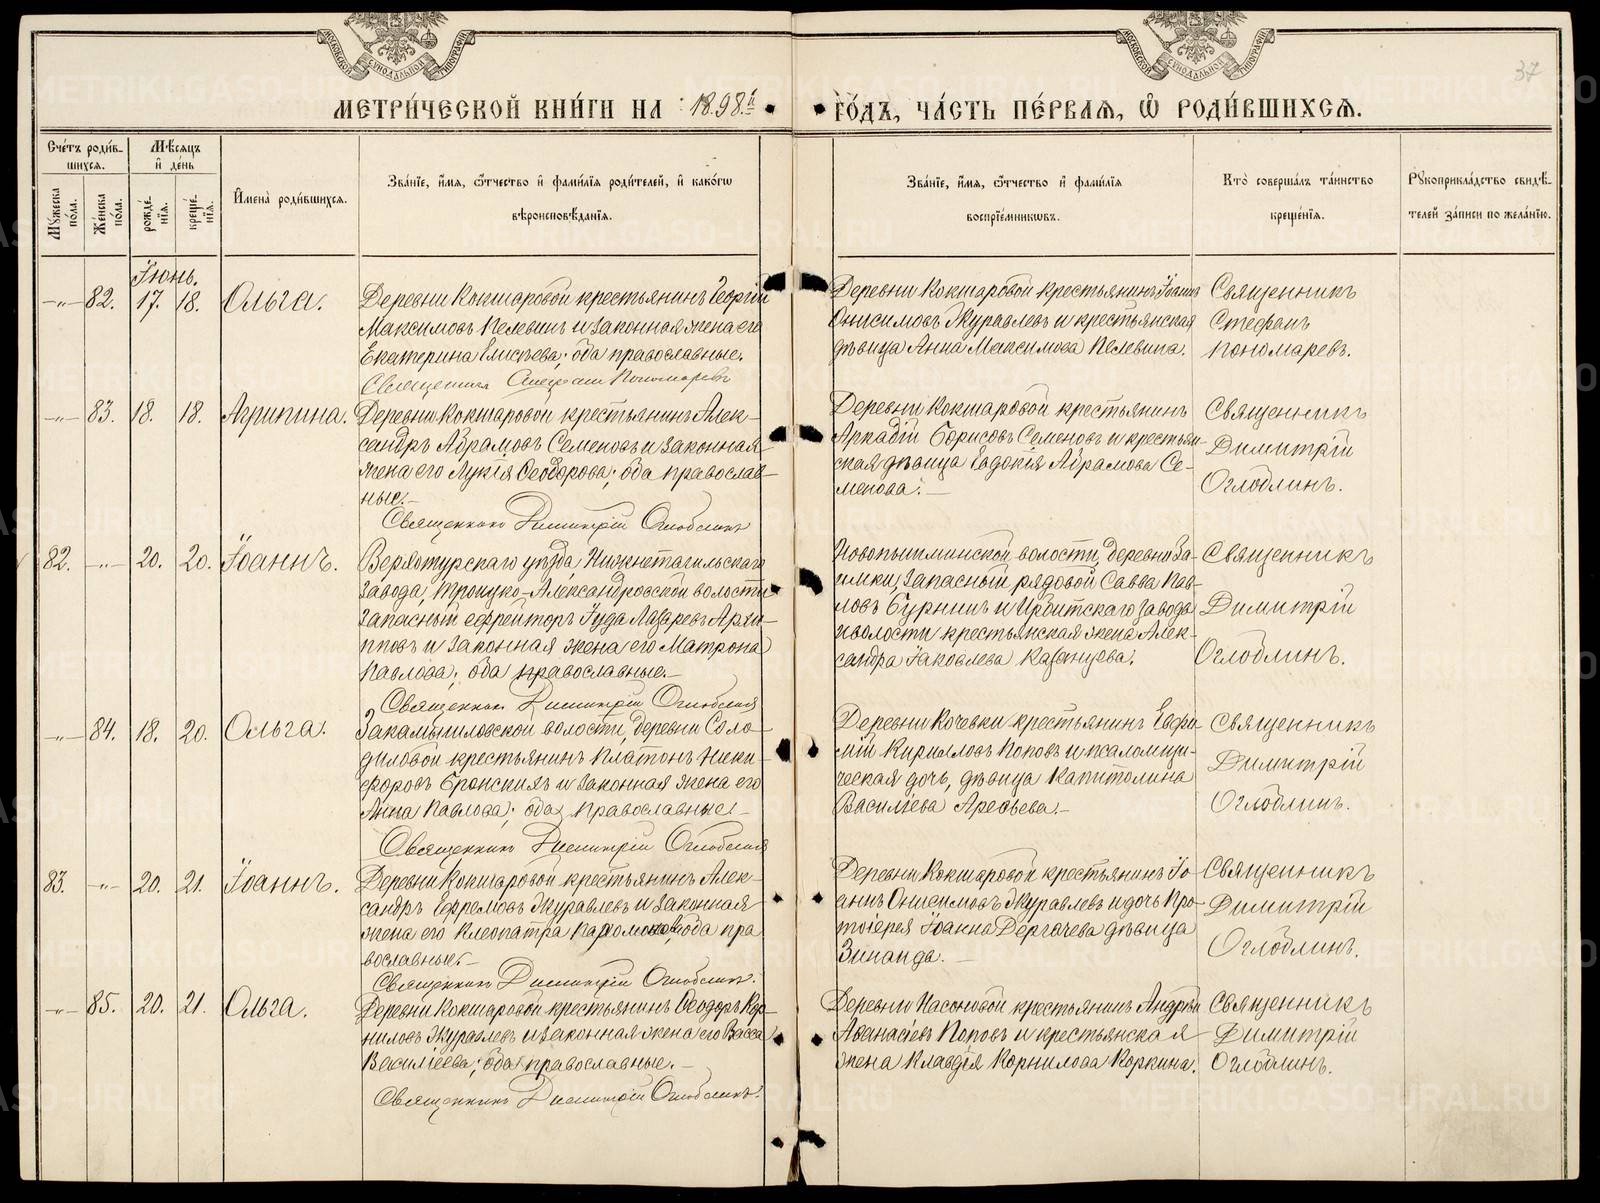 МОСКОВСКОЙ СУНОДАЛЬНОЙ ТИПОГРАФІИ
МОСКОВСКОЙ СУНОДАЛЬНОЙ ТИПОГРАФІИ
37
МЕТРИ́ЧЕСКОЙ КНИ́ГИ НА 1898й
ГО́ДЪ, ЧА́СТЬ ПЕ́РВАЯ, Ѡ РОДИ́ВШИХСЯ.
Сче́тъ роди́вшихся.
Мѣ́сяцъ и҆ де́нь
Му́жеска по́ла.
Же́нска по́ла.
рожде́нїя.
креще́нїя.
И҆мена̀ роди́вшихся.
Зва́нїе, и҆́мя, ѻ҆́тчество и҆ фами́лїя роди́телей, и҆ како́гѡ
вѣроисповѣ́данїя.
Зва́нїе, и҆́мя, ѻ҆́тчество и҆ фами́лїя
воспрїе́мниковъ.
Кто̀ соверша́лъ та́инство
креще́нїя.
Рꙋкоприкла́дство свидѣ́-
телей за́писи по жела́нїю.
Іюнь.
-„- 82. 17. 18. Ольга.
Деревни Кокшаровой крестьянинъ Георгій
Максимовъ Пелевинъ и законная жена его
Екатерина Елисѣева; оба православные.
Священникъ Стефанъ Пономаревъ
Деревни Кокшаровой крестьянинъ Іоаннъ
Онисимовъ Журавлевъ и крестьянская
дѣвица Анна Максимова Пелевина.
Священникъ
Стефанъ
Пономаревъ.
-„- 83. 18. 18. Агрипина.
Деревни Кокшаровой крестьянинъ Алек-
сандръ Абрамовъ Семеновъ и законная
жена его Лукія Ѳеодорова; оба православ-
ные.-
Священникъ Димитрій Оглоблинъ
Деревни Кокшаровой крестьянинъ
Аркадій Борисовъ Семеновъ и крестьян-
ская дѣвица Евдокія Абрамова Се-
менова. -
Священникъ
Димитрій
Оглоблинъ.
82. -„- 20. 20. Іоаннъ.
Верхотурскаго уѣзда, Нижнетагильскаго
завода, Троицко-Александровской волости
запасный ефрейторъ Іуда Лазаревъ Архи-
повъ и законная жена его Матрона
Павлова; оба православные.-
Священникъ Димитрій Оглоблинъ
Новопышминской волости, деревни За-
имки, запасный рядовой Савва Пав-
ловъ Бурнинъ и Ирбитскаго завода
и волости крестьянская жена Алек-
сандра Іаковлева Казанцева.
Священникъ
Димитрій
Оглоблинъ.
-„- 84. 18. 20. Ольга.
Закамышловской волости, деревни Соло-
диловой крестьянинъ Платонъ Ники-
форовъ Бронскихъ и законная жена его
Анна Павлова; оба православные.-
Священникъ Димитрій Оглоблинъ
Деревни Кочевки крестьянинъ Евфи-
мій Кирилловъ Поповъ и псаломщи-
ческая дочь, дѣвица Капитолина
Василіева Арефьева.-
Священникъ
Димитрій
Оглоблинъ.
83. -„- 20. 21. Іоаннъ.
Деревни Кокшаровой крестьянинъ Алек-
сандръ Ефремовъ Журавлевъ и законная
жена его Клеопатра оба пра
вославные.-
Священникъ Димитрій Оглоблинъ.
Деревни Кокшаровой крестьянинъ Іо-
аннъ Онисимовъ Журавлевъ и дочь Про-
тоіерея Іоанна Дергачева дѣвица
Зинаида. -
Священникъ
Димитрій
Оглоблинъ.
-„- 85. 20. 21. Ольга.
Деревни Кокшаровой крестьянинъ Ѳеодоръ Кор-
ниловъ Журавлевъ и законная жена его Васса
Василіева; оба православные.-
Священникъ Димитрій Оглоблинъ.
Деревни Насоновой крестьянинъ Андрей
Аѳанасіевъ Поповъ и крестьянская
жена Клавдія Корнилова Коркина.
Священникъ
Димитрій
Оглоблинъ.
METRIKI.GASO-URAL.RU